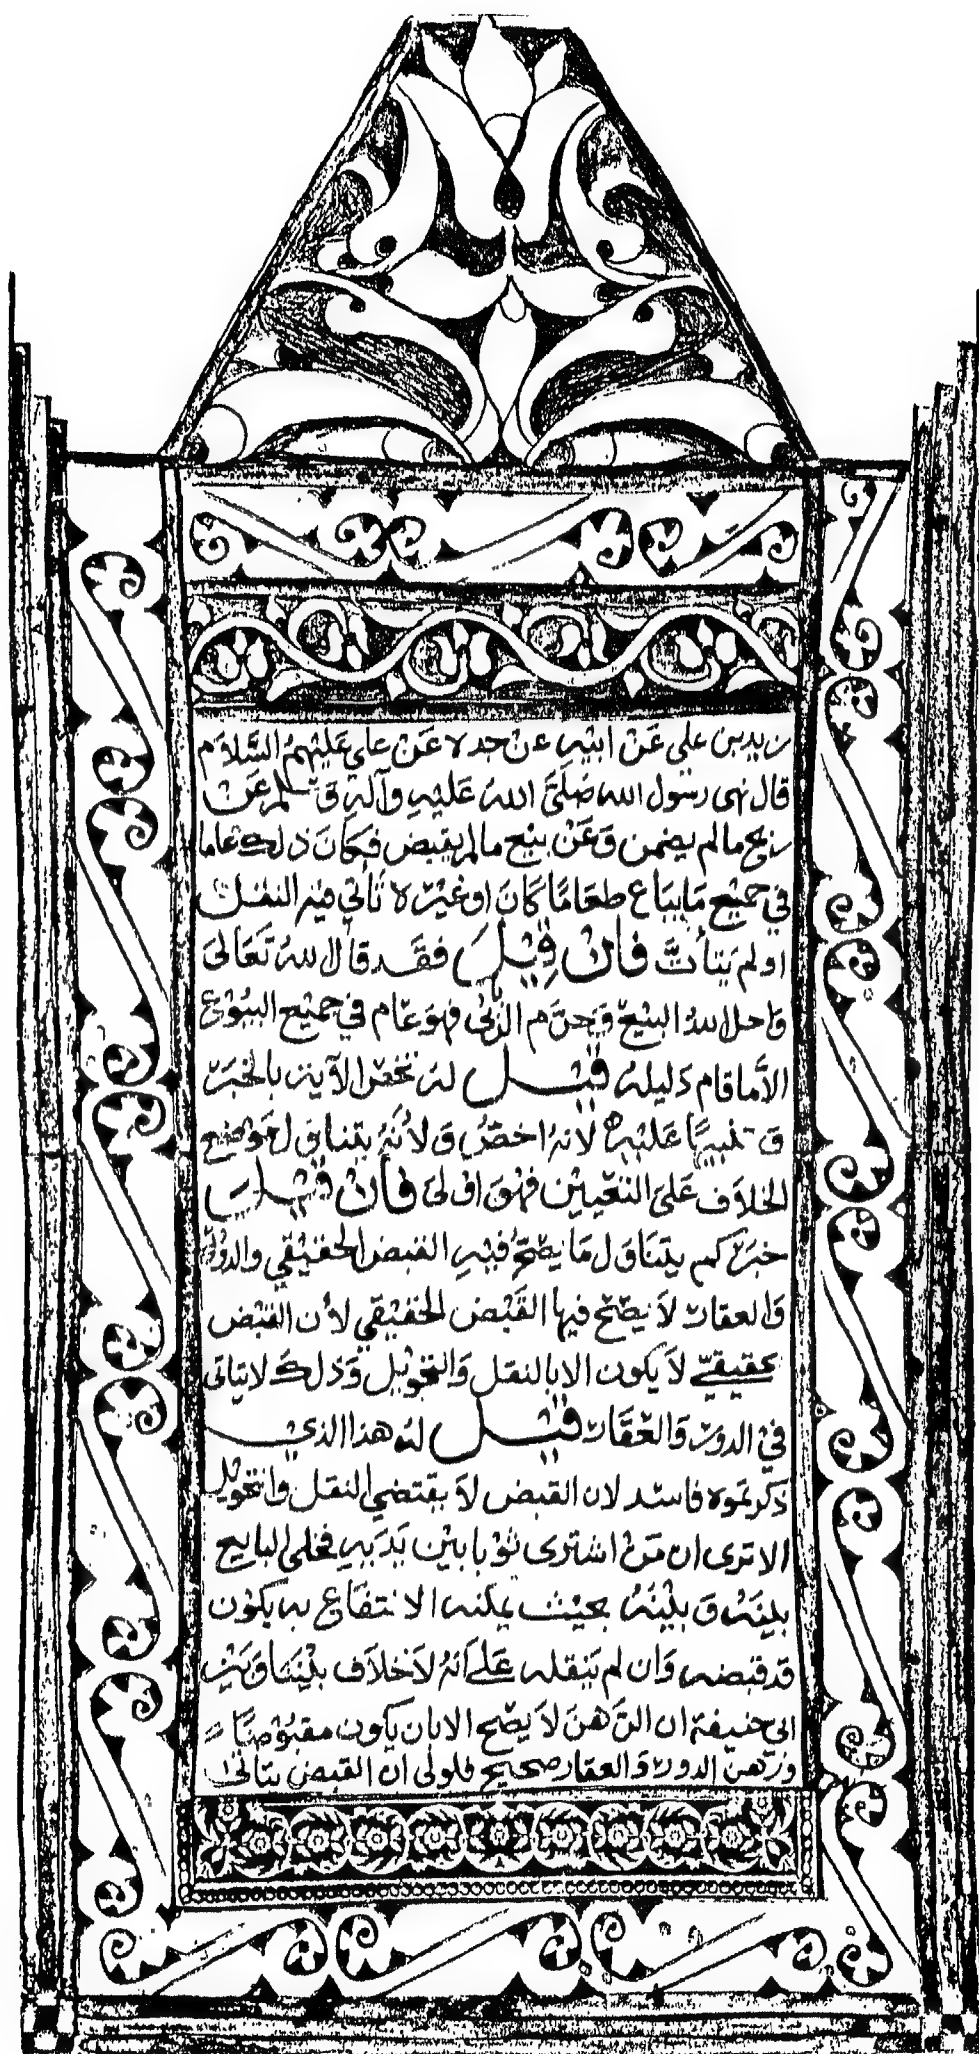 زيد بن علي عَنْ ابيْهِ عن جده عَنْ علي عَليْهِمُ السَّلاَم
قال نهى رسول الله صَلَّىَ اللهُ عَليْهِ وآلهِ وَسلم عَنْ
ربح مالم يضمن وَعَنْ بيْع مالم يقبض فكَانَ ذلك عاما
في جميْع مَا يباع طعَامًا كَانَ او غيْره تَأتىَّ فيْهِ النقل
او لم يَتأتَّ فَانْ قِيْلَ فقَد قال اللهُ تعَالىَ
وَاحل اللهُ البيْعَ وَحرَّم الرّبىَ فهوَ عَام في جميْع البيُوْع
الاَّ ما قام دَليلهُ قيْل لهُ نخصّ الآية بالخبَر
وَ نبنيهَا عَليْهِ لأنهُ اخصّ وَلأنهُ يتناول موْضع
الخلاَف عَلىَ التعيين فهوَ اوْلىَ فأنْ قيْلَ
خبركم يتنَاوَل مَا يصّحُّ فيْهِ القبض الحقيْقي والدّوْر
وَالعقار لاَ يصّحّ فيها القَبْض الحقيْقي لأن القبْض
الحقيقيّ لاَ يكون الا بالنقل وَالتحْويْل وَذلكَ لا يتاتى
في الدور وَالعقار قيْل لهُ هذا الذي
ذكرتموه فاسد لان القبض لاَ يقتضي النقل والتحْويْل
الا ترى ان مَنْ اشترى ثوْبا بيْن يَدَيهِ فخلى البايع
بيْنهُ وَ بيْنهُ بحيْث يمكنه الانتفاع به يكُوْن
قد قبضه وَان لم يَنقله عَلىَ انهُ لاَ خلاَف بيْننا وَبَيْن
ابي حنيفة ان الرّهنَ لاَ يصّح الا بان يكون مقبُوْضًا
وَرهن الدور وَالعقار صحيح فلولى ان القبض يتاتى